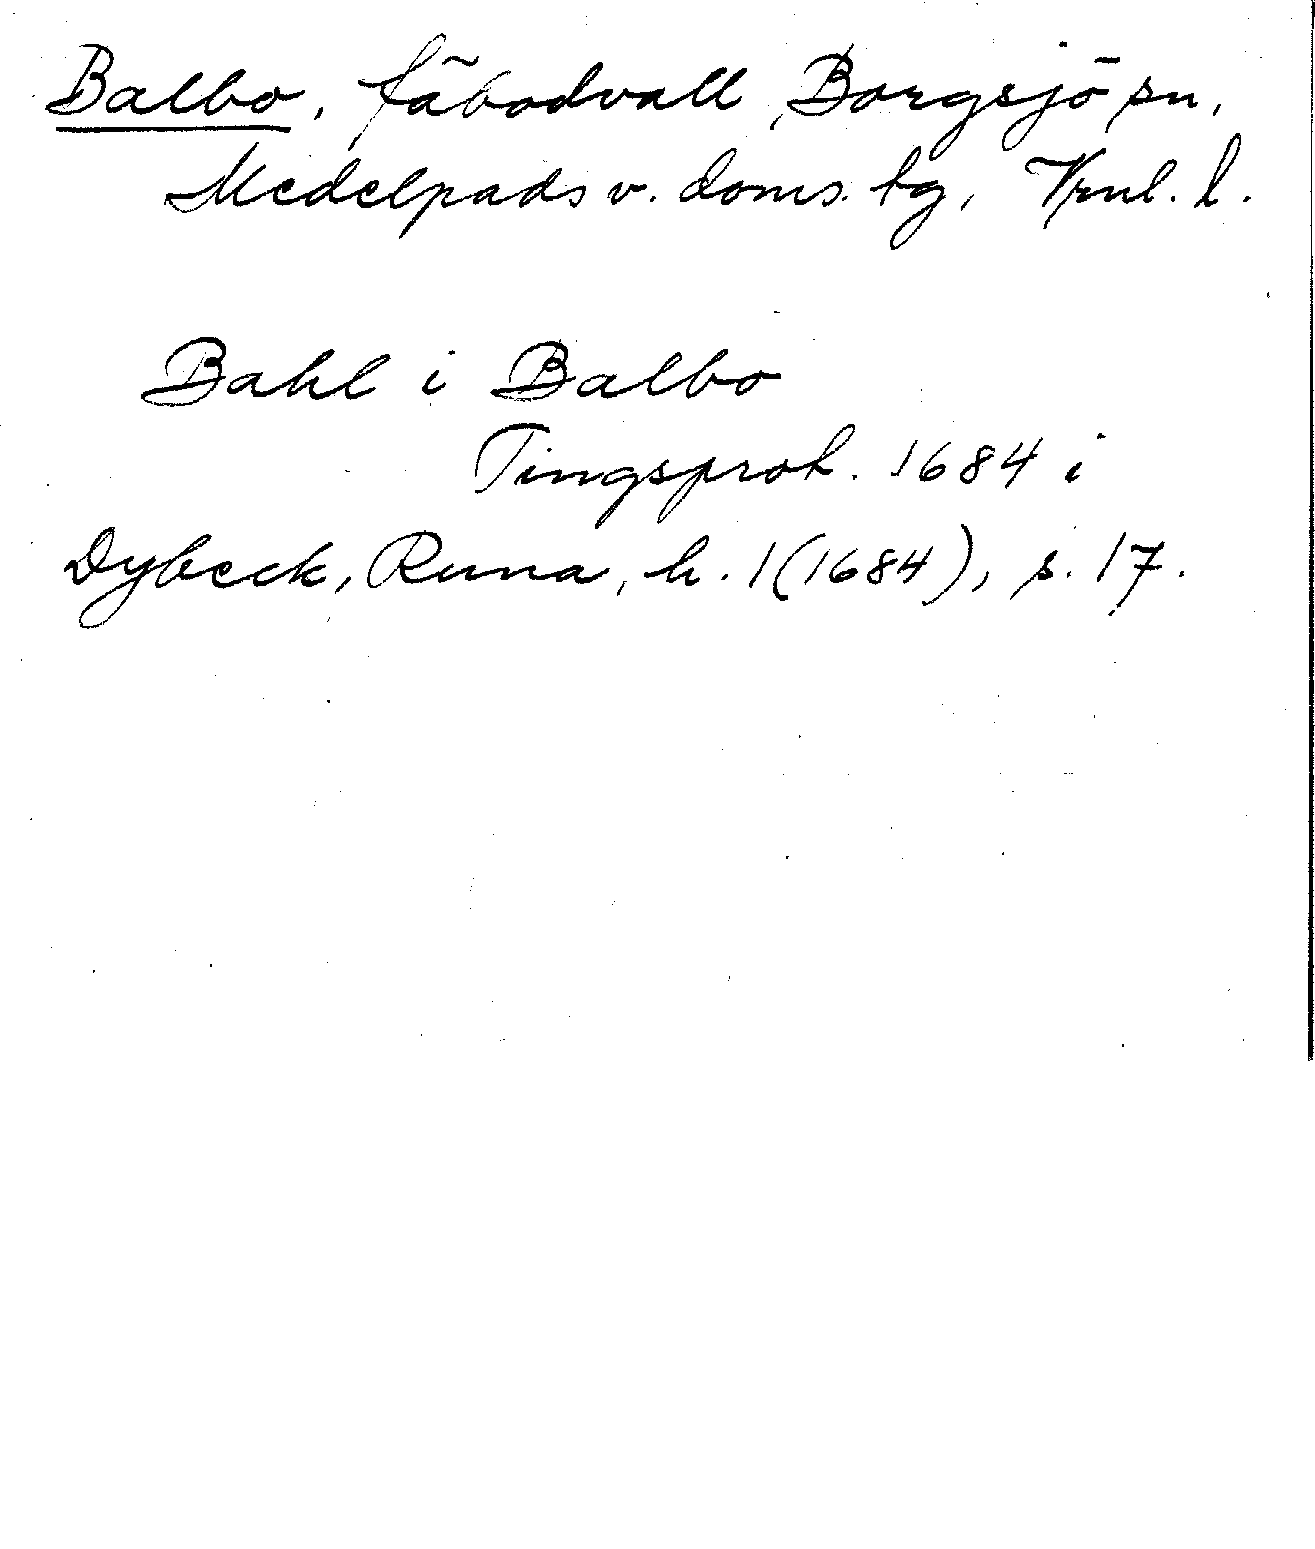 Balbo, fäbodvall, Borgsjö sn,
Medelpads v. doms. tg, Vrnl. l.
Bahl i Balbo
Tingsprot. 1684 i
Dybeck, Runa, h. 1 (1684), s. 17.